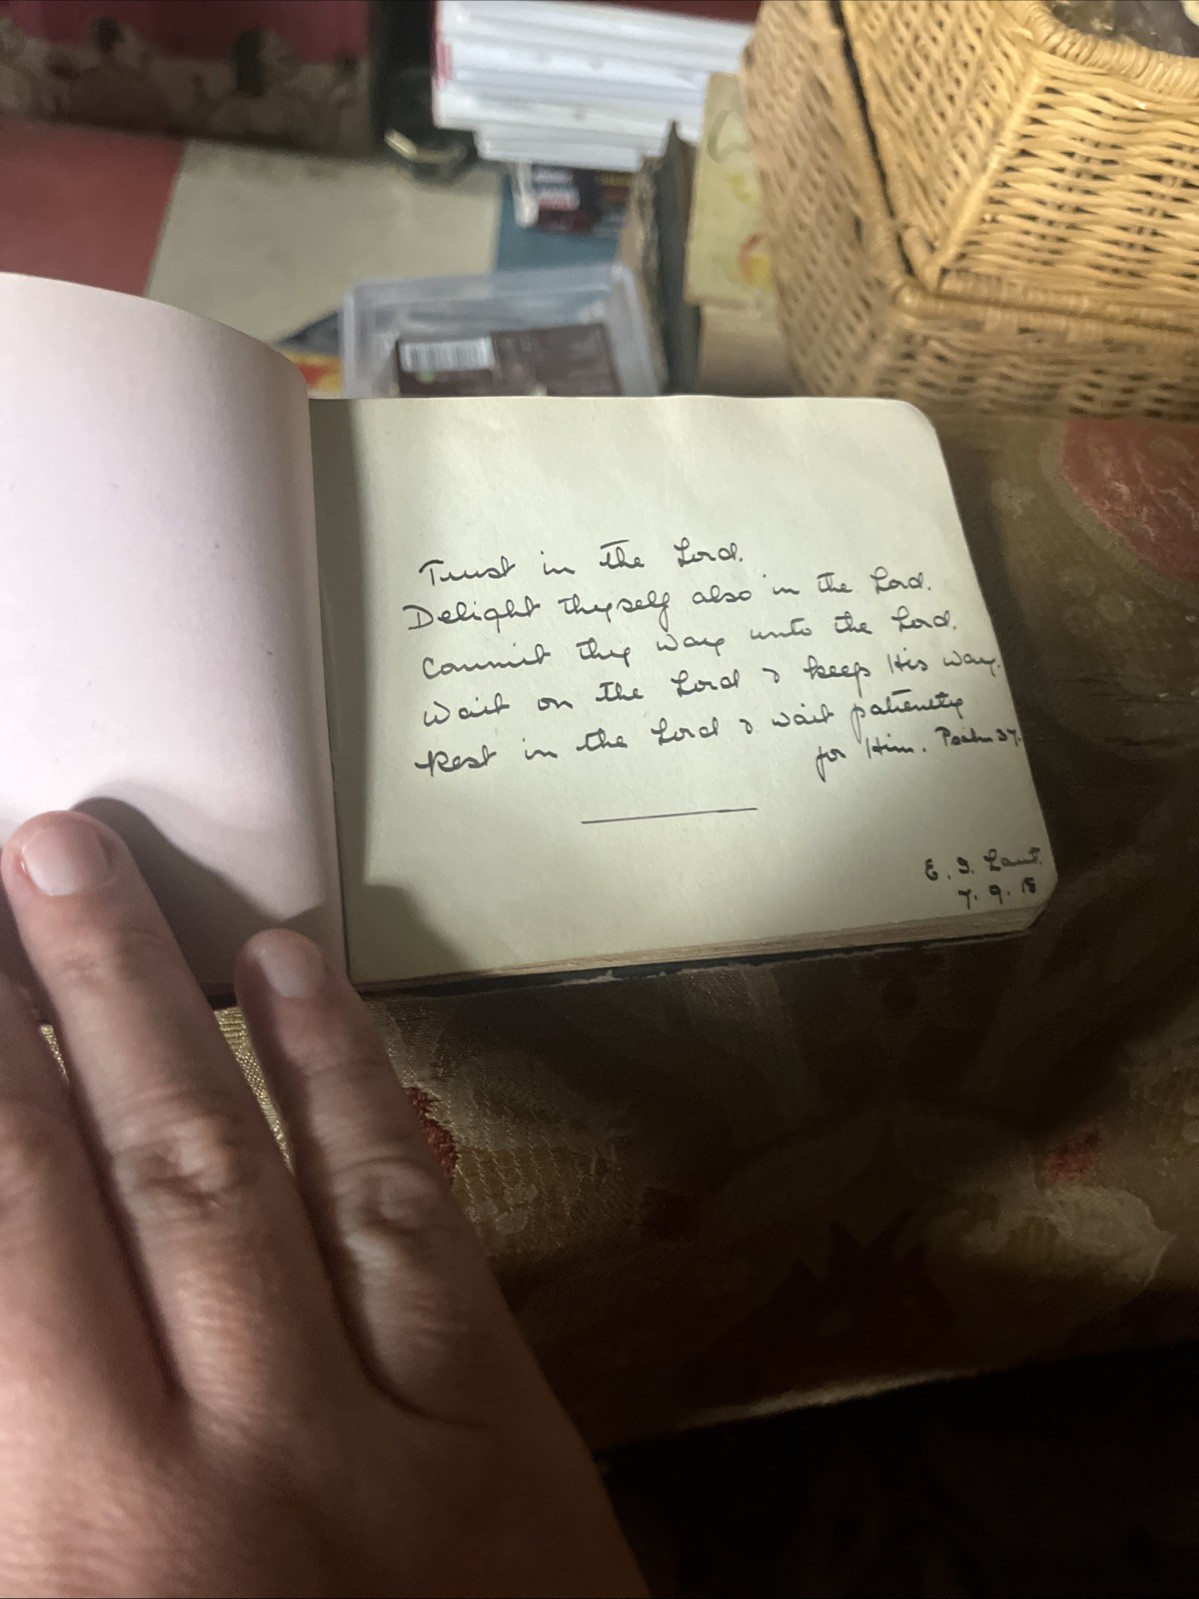 Trust in the Lord.
Delight thyself also in the Lord.
Commit thy way unto the Lord.
Wait on the Lord & keep His way.
Rest in the Lord & wait patiently
for Him. Psalm 37.
E. I. Laut.
7. 9. 18